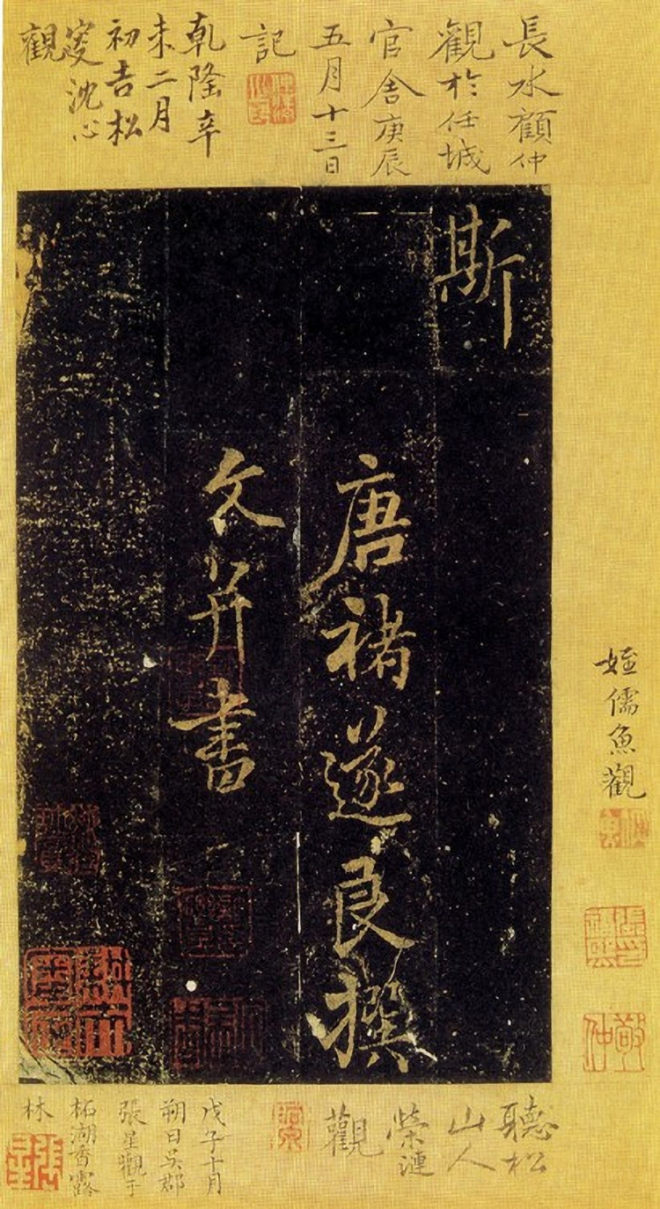 長水顧仲
觀於任城
官舍庚辰
五月十三日
記
乾隆辛
未二月
初吉松
窆沈心
觀
斯
唐褚遂良撰
文并書
姪儒魚觀
聽松
山人
榮漣
觀
戊子十月
朔日吳郡
張星觀于
柘湖香露
林